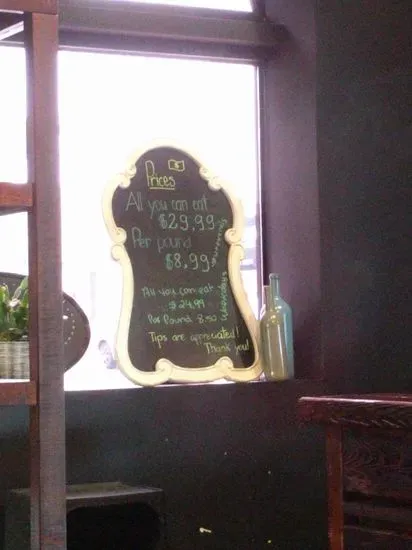 Prices $
All you can eat
$29.99
Per pound
$8.99
All you can eat
$24.99
Per Pound 8.50
Tips are appreciated!
Thank you!